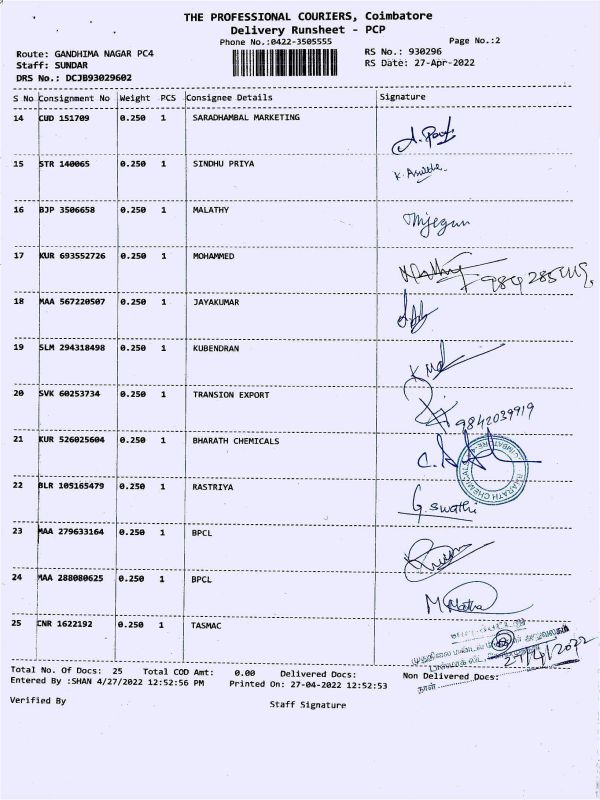 THE PROFESSIONAL COURIERS, Coimbatore
Delivery Runsheet - PCP
Phone No.:0422-3505555
Page No.:2
Route: GANDHIMA NAGAR PC4
RS No.: 930296
Staff: SUNDAR
RS Date: 27-Apr-2022
DRS No.: DCJB93029602
S No Consignment No Weight PCS Consignee Details Signature
14 CUD 151709 0.250 1 SARADHAMBAL MARKETING
15 STR 140065 0.250 1 SINDHU PRIYA
16 BJP 3506658 0.250 1 MALATHY
17 KUR 693552726 0.250 1 MOHAMMED
18 MAA 567220507 0.250 1 JAYAKUMAR
19 SLM 294318498 0.250 1 KUBENDRAN
20 SVK 60253734 0.250 1 TRANSION EXPORT 9842039919
21 KUR 526025604 0.250 1 BHARATH CHEMICALS BHARATH CHEMICALS
22 BLR 105165479 0.250 1 RASTRIYA G. Swathi
23 MAA 279633164 0.250 1 BPCL
24 MAA 288080625 0.250 1 BPCL
25 CNR 1622192 0.250 1 TASMAC
27/4/2022
நாள்
Total No. Of Docs: 25 Total COD Amt: 0.00 Delivered Docs: Non Delivered Docs:
Entered By :SHAN 4/27/2022 12:52:56 PM Printed On: 27-04-2022 12:52:53
Verified By Staff Signature